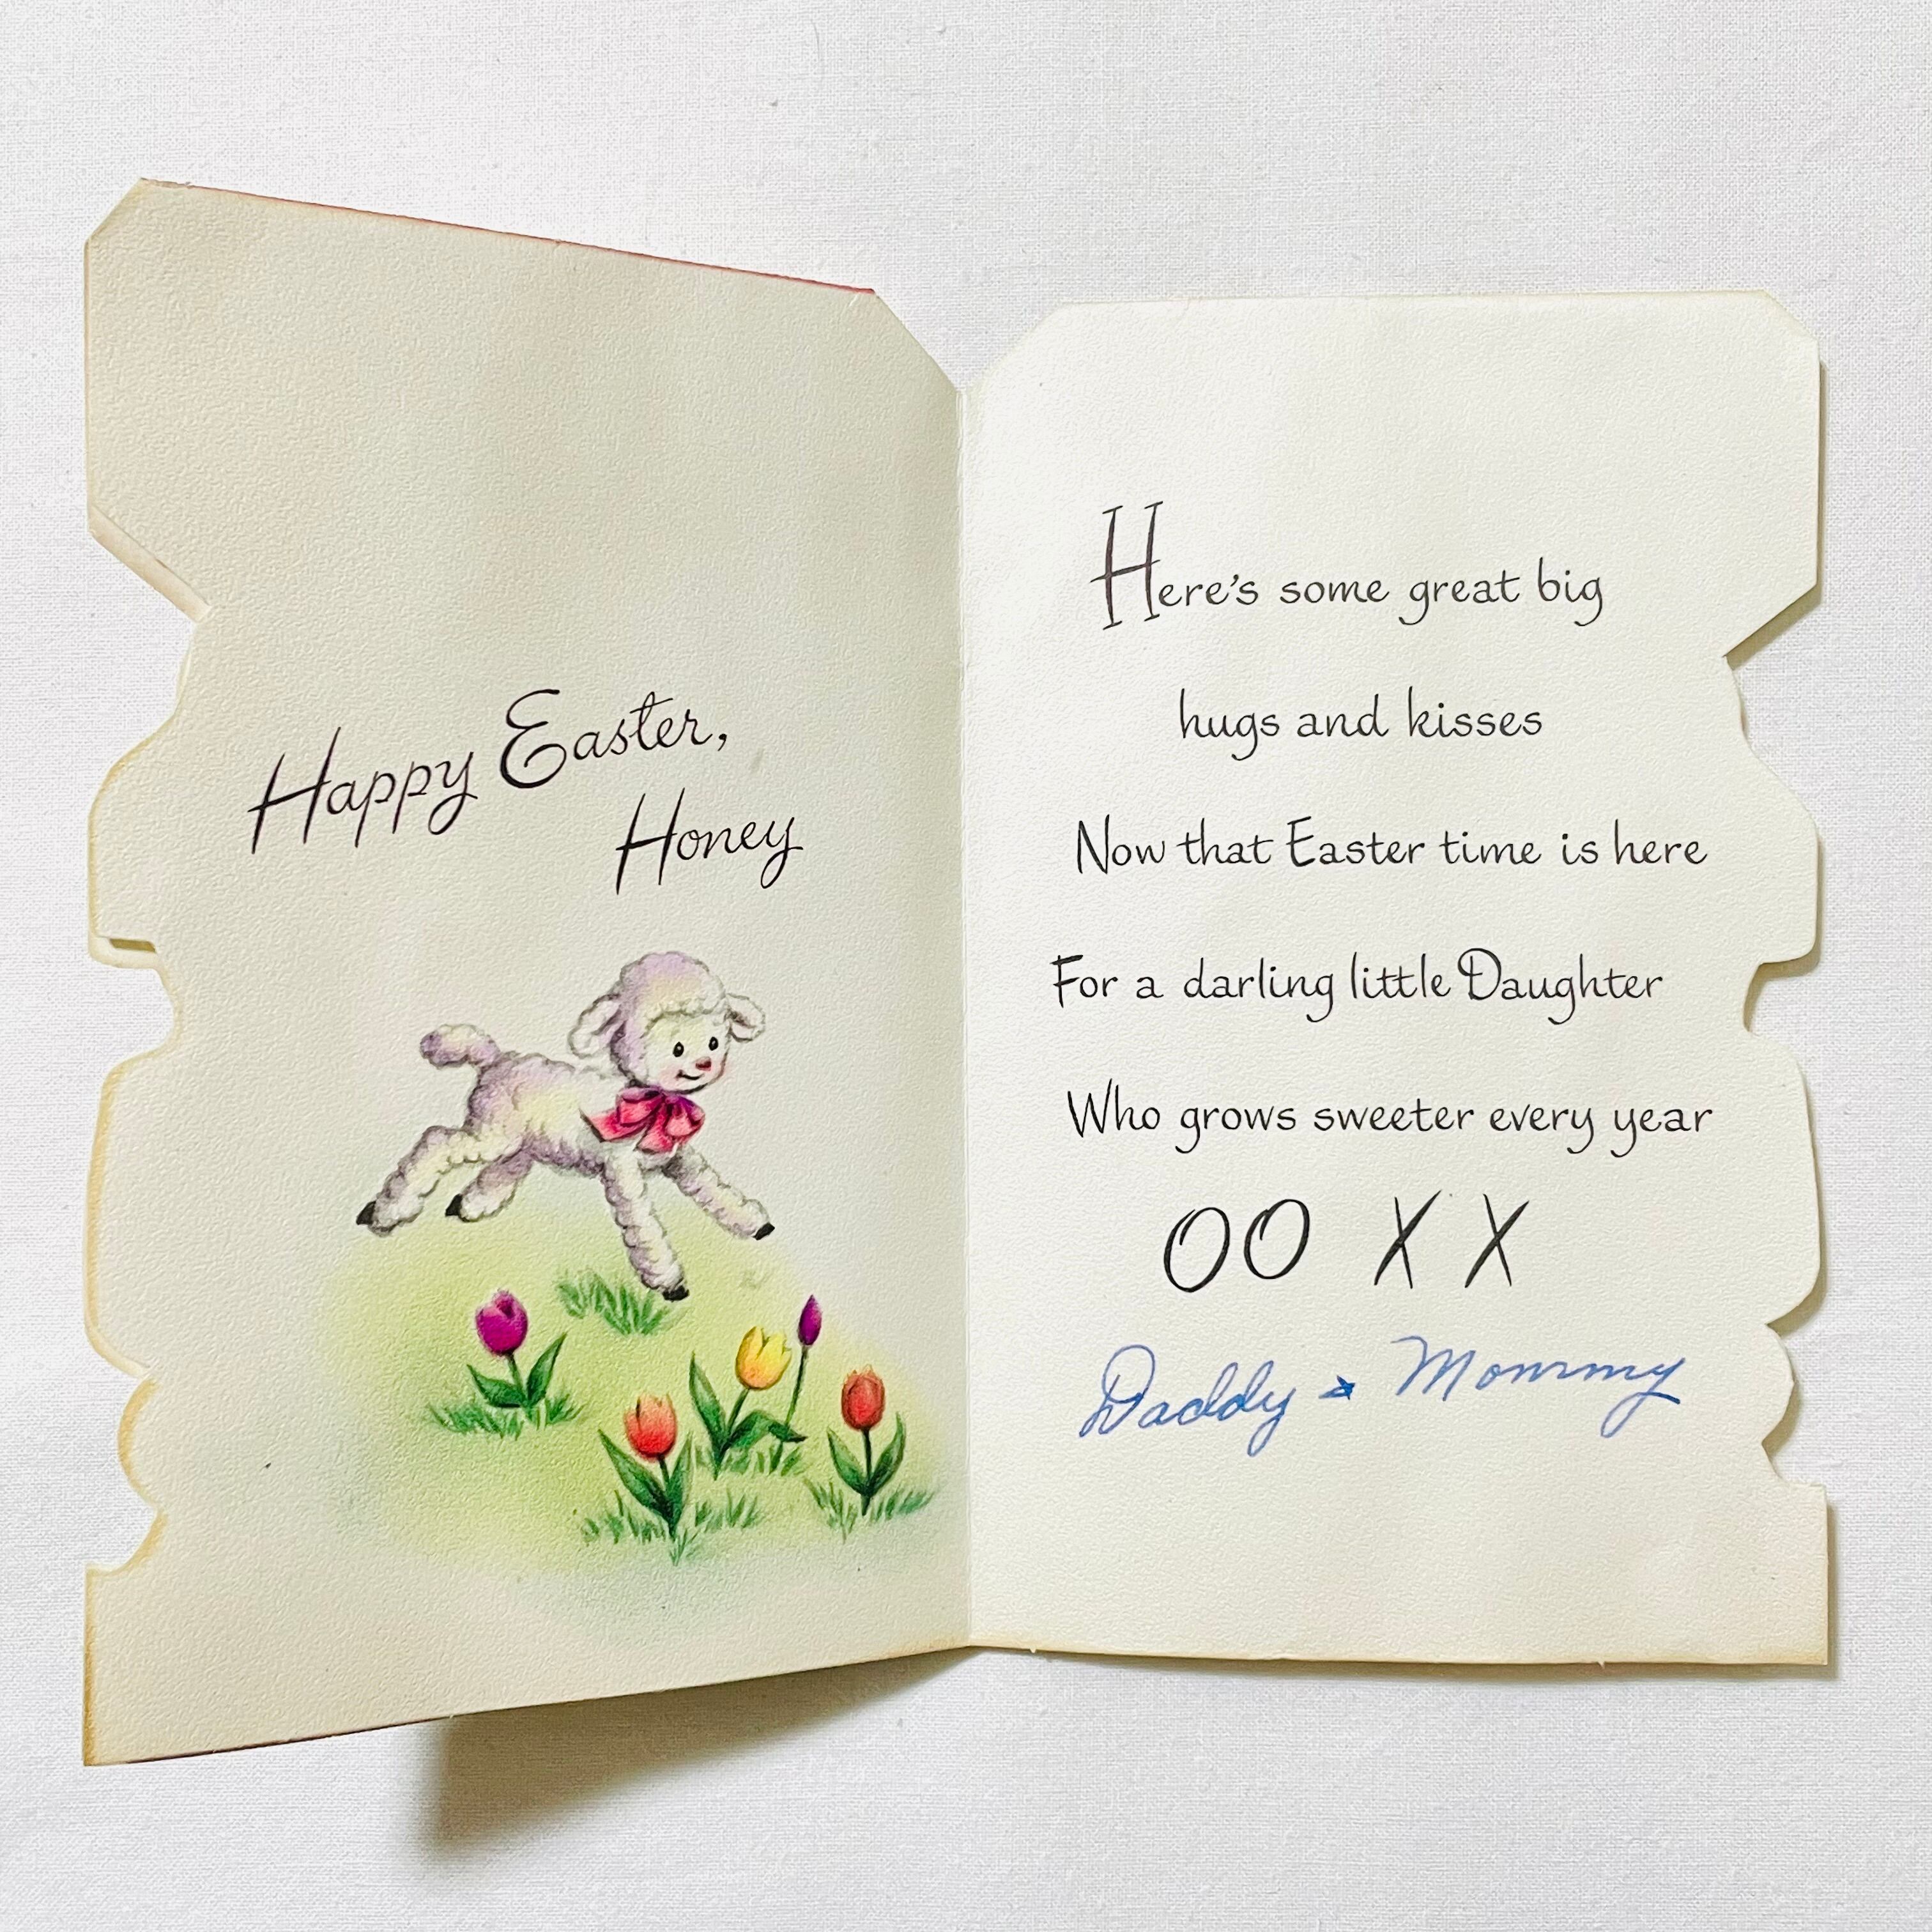 Happy Easter,
Honey
Here's some great big
hugs and kisses
Now that Easter time is here
For a darling little Daughter
Who grows sweeter every year
OO XX
Daddy & Mommy